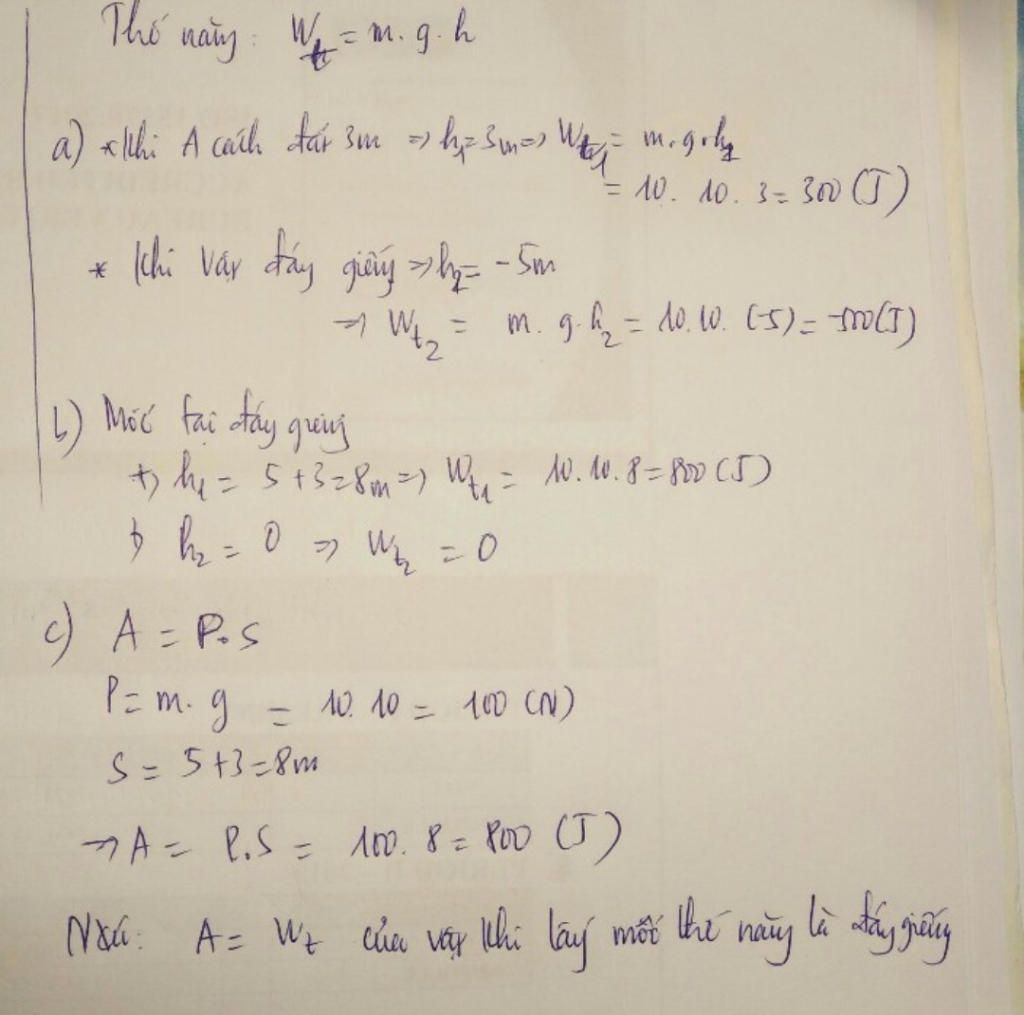 Thế năng: Wt = m.g.h
a) *Khi A cách đất 3m => h₁=3m=> Wt₁ = m.g.h₁
= 10. 10. 3= 300 (J)
* Khi vật đáy giếng => h₂= -5m
=> Wt₂ = m. g.h₂ = 10.10. (-5)= -500(J)
b) Mốc tại đáy giếng
+) h₁ = 5+3=8m=> Wt₁ = 10.10.8=800 (J)
+) h₂ = 0 => Wt₂ = 0
c) A = P.S
P= m. g = 10. 10 = 100 (N)
S = 5+3=8m
=> A = P.S = 100. 8= 800 (J)
A = Wt của vật khi lấy mốc thế năng là đáy giếng